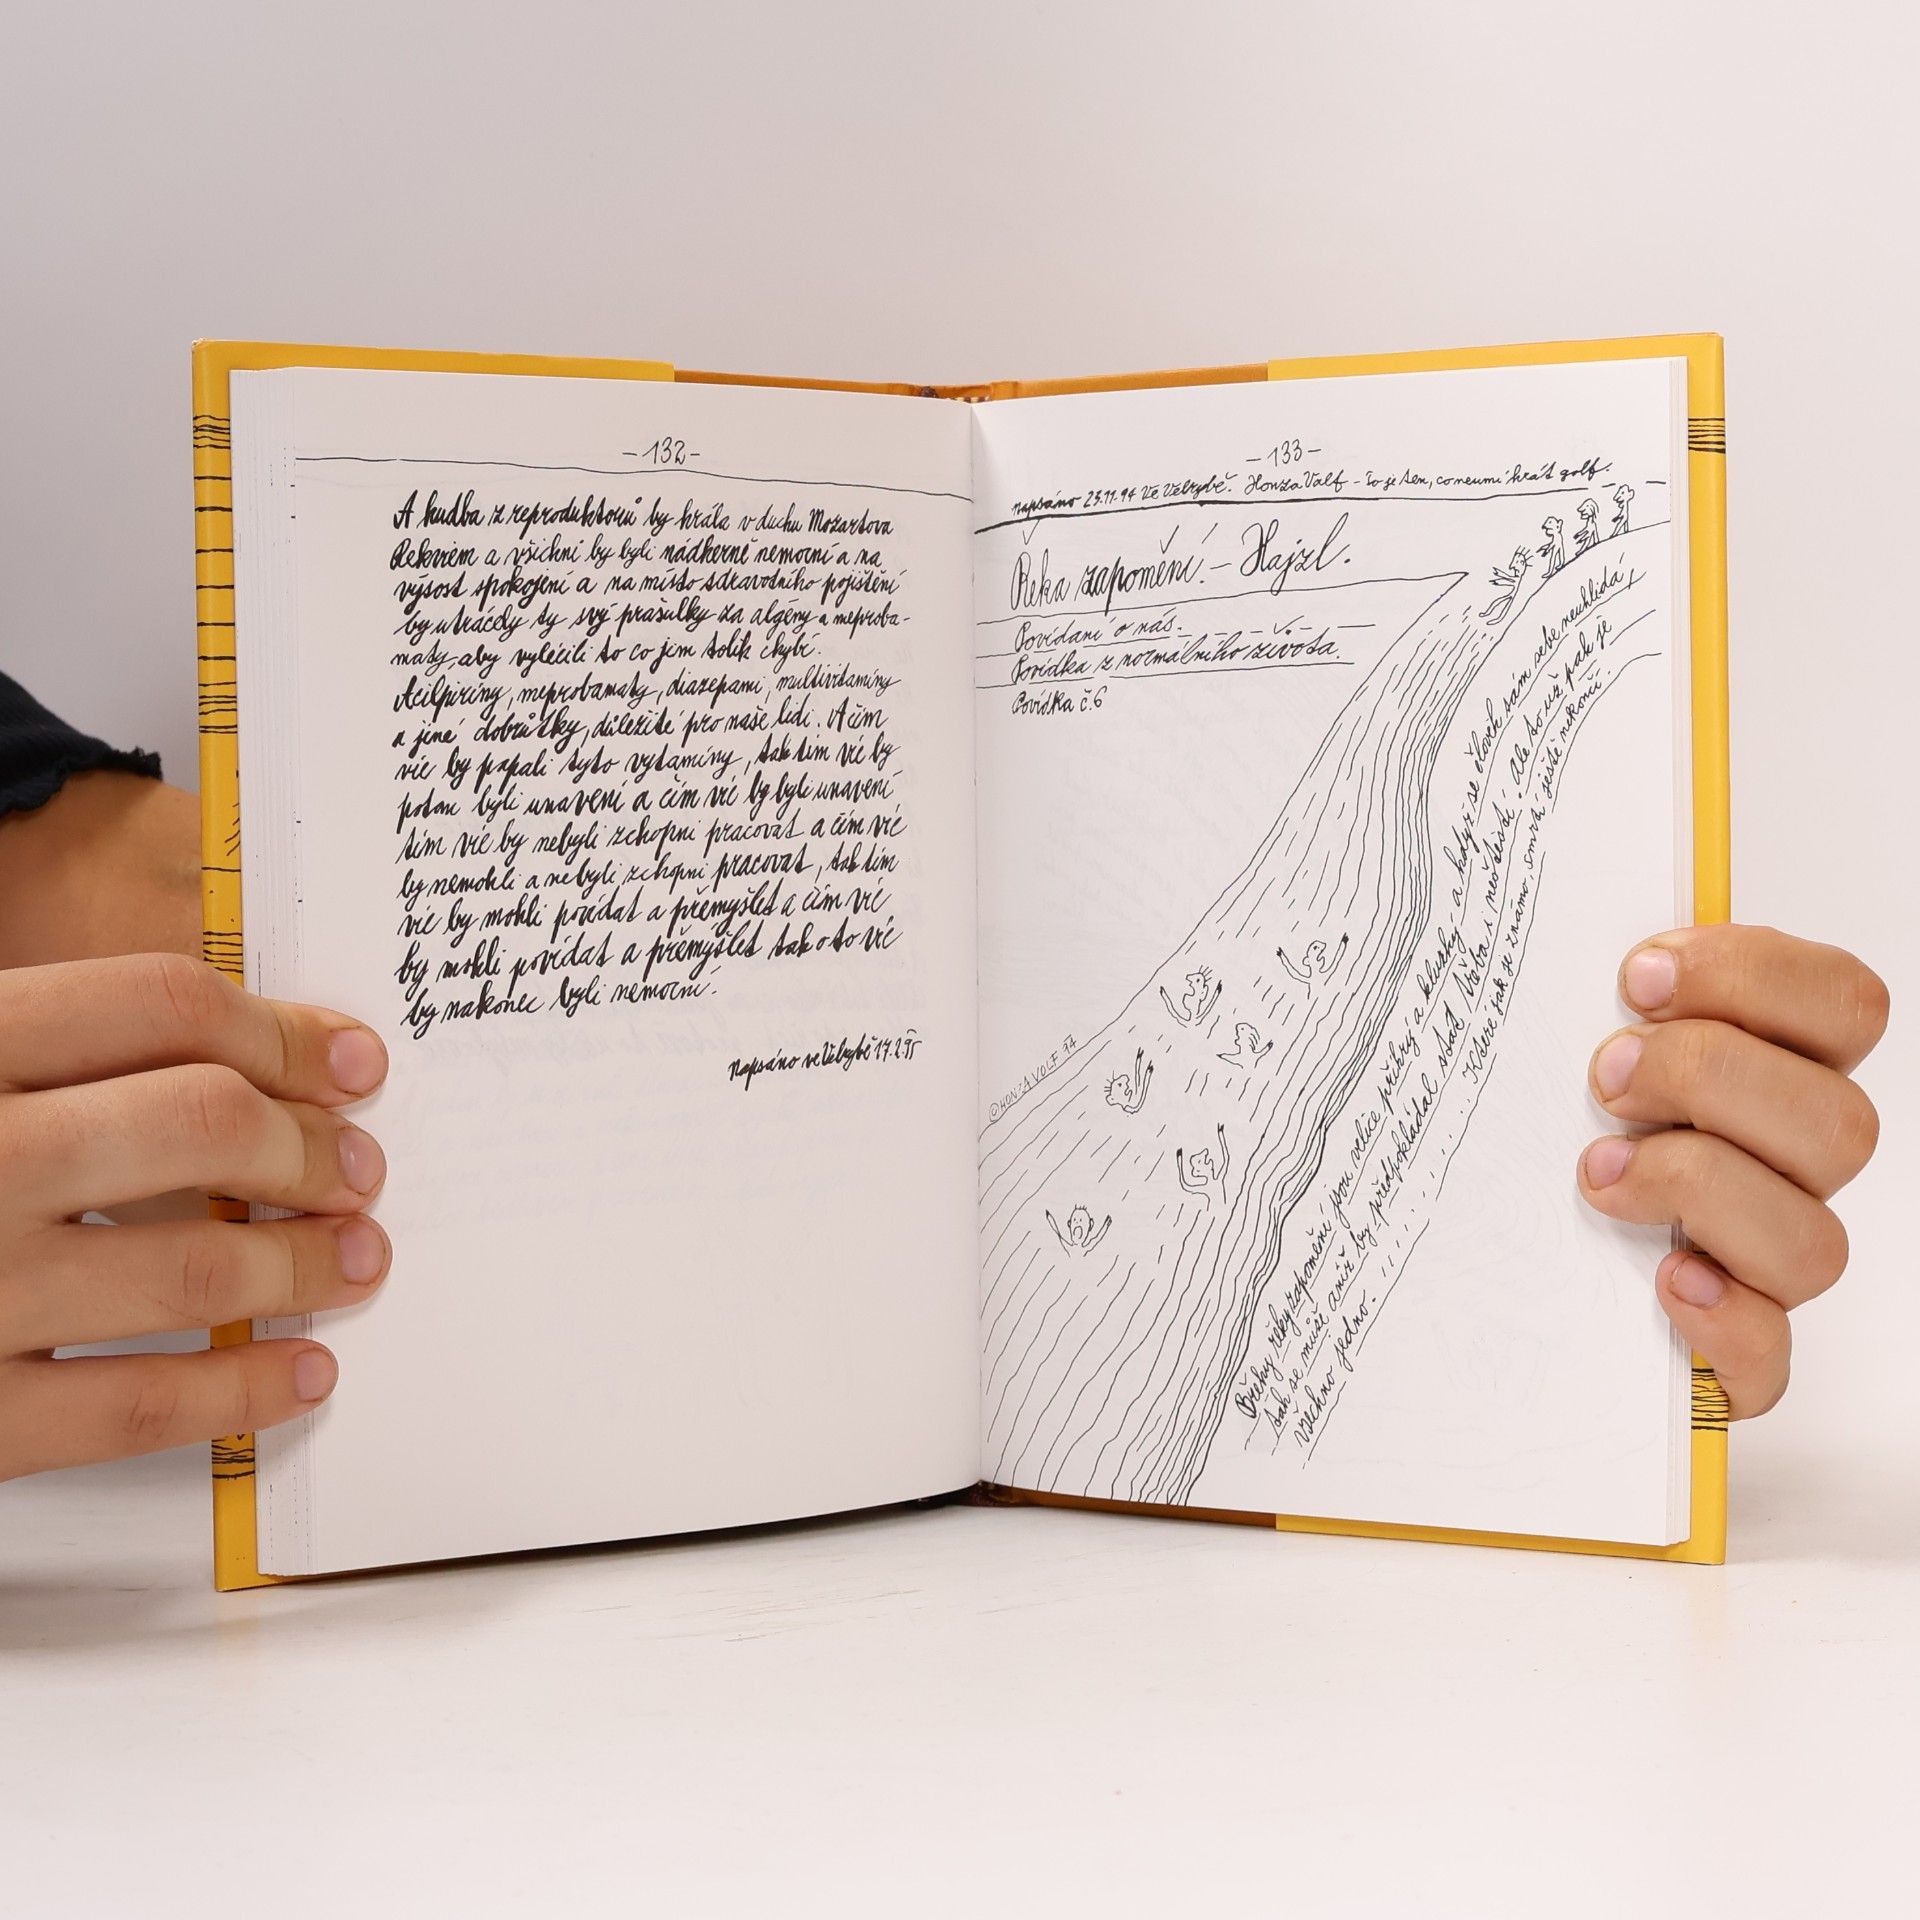 -132-
A hudba z reproduktorů by hrála v duchu Mozartova
Rekviem a všichni by byli nádherně nemocní a na
výsost spokojení a na místo zdravotního pojištění
by utrácely ty svý prašulky za algény a meproba-
maty, aby vyléčili to co jim tolik chybí.
Acilpiriny, meprobamaty, diazepami, multivitamíny
a jiné dobrůtky, důležité pro naše lidi. A čím
víc by papali tyto vytamíny, tak tím víc by
potom byli unavení a čím víc by byli unavení
tím víc by nebyli zchopni pracovat a čím víc
by nemohli a nebyli zchopni pracovat, tak tím
víc by mohli povídat a přemýšlet a čím víc
by mohli povídat a přemýšlet tak o to víc
by nakonec byli nemocní.
Napsáno ve Velrybě 17.2.95
-133-
Napsáno 25.11.94 Ve Velrybě. Honza Volf - To je ten, co neumí hrát golf.
Řeka zapomění! - Hajzl.
Povídaní o nás.
Povídka z normálního života.
Povídka č.6
©HONZA VOLF 94
Břehy řeky zapomění jsou velice příkrý a kluzký a když se člověk sám sebe neuhlídá,
tak se může aniž by předpokládal stát třeba i neštěstí. Ale to už pak je
všechno jedno. . . . . . . . . Které jak je známo, smrtí ještě nekončí.